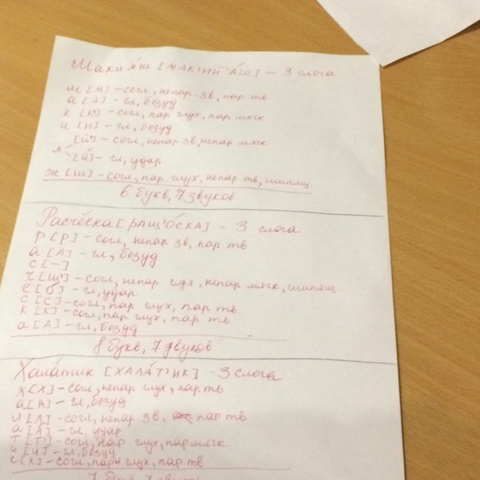 Макияж [МАК'ИЙ'АШ] - 3 слога
м [М] - согл, непар. зв, пар тв
а [А] - гл, безуд
к [К'] - согл, пар глух, пар мягк
и [И] - гл, безуд
я [й'] - согл, непар зв, непар мягк
[а́] - гл, удар
ж [Ш] - согл, пар глух, непар тв, шипящ
6 букв, 7 звуков
Расчёска [РАЩ'О́СКА] - 3 слога
р [Р] - согл, непар зв, пар тв
а [А] - гл, безуд
с [-]
ч [Щ'] - согл, непар глух, непар мягк, шипящ
ё [о́] - гл, удар
с [С] - согл, пар глух, пар тв
к [К] - согл, пар глух, пар тв
а [А] - гл, безуд
8 букв, 7 звуков
Хала́тик [ХАЛА́Т'ИК] - 3 слога
х [Х] - согл, непар глух, пар тв
а [А] - гл, безуд
л [Л] - согл, непар зв, пар тв
а [А́] - гл, удар
т [Т'] - согл, пар глух, пар мягк
и [И] - гл, безуд
к [К] - согл, пар глух, пар тв
7 букв, 7 звуков